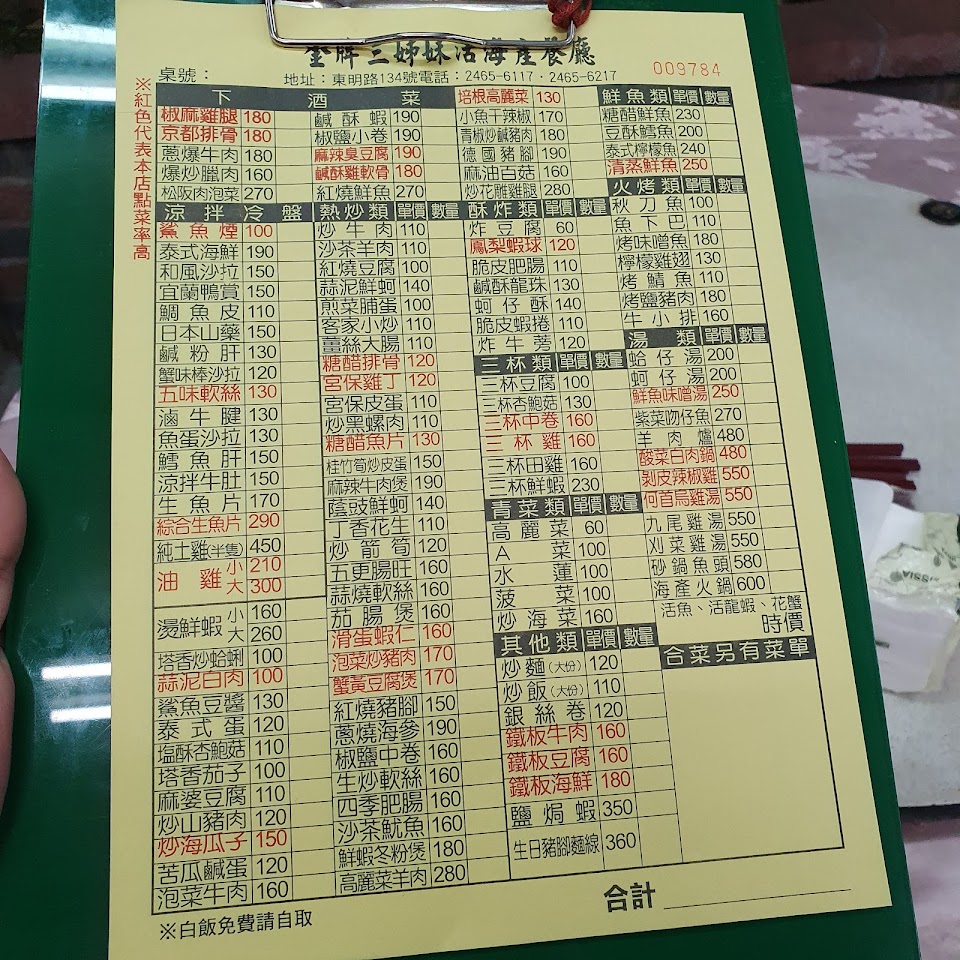 金牌三姊妹活海產餐廳
桌號：
地址：東明路134號電話：2465-6117・2465-6217
009784
※紅色代表本店點菜率高
下酒菜
椒麻雞腿 180
京都排骨 180
蔥爆牛肉 180
爆炒臘肉 160
松阪肉泡菜 270
涼拌冷盤
鯊魚煙 100
泰式海鮮 190
和風沙拉 150
宜蘭鴨賞 150
鯛魚皮 110
日本山藥 150
鹹粉肝 130
蟹味棒沙拉 120
五味軟絲 130
滷牛腱 130
魚蛋沙拉 130
鱈魚肝 150
涼拌牛肚 150
生魚片 170
綜合生魚片 290
純土雞(半隻) 450
油雞 小 210
大 300
燙鮮蝦 小 160
大 260
塔香炒蛤蜊 100
蒜泥白肉 100
鯊魚豆醬 130
泰式蛋 120
塩酥杏鮑菇 110
塔香茄子 100
麻婆豆腐 110
炒山豬肉 120
炒海瓜子 150
苦瓜鹹蛋 120
泡菜牛肉 160
鹹酥蝦 190
椒鹽小卷 190
麻辣臭豆腐 190
鹹酥雞軟骨 180
紅燒鮮魚 270
熱炒類 單價 數量
炒牛肉 110
沙茶羊肉 110
紅燒豆腐 100
蒜泥鮮蚵 140
煎菜脯蛋 100
客家小炒 110
薑絲大腸 110
糖醋排骨 120
宮保雞丁 120
宮保皮蛋 110
炒黑螺肉 110
糖醋魚片 130
桂竹筍炒皮蛋 150
麻辣牛肉煲 190
蔭豉鮮蚵 140
丁香花生 110
炒箭筍 120
五更腸旺 160
蒜燒軟絲 160
茄腸煲 160
滑蛋蝦仁 160
泡菜炒豬肉 170
蟹黃豆腐煲 170
紅燒豬腳 150
蔥燒海參 190
椒鹽中卷 160
生炒軟絲 160
四季肥腸 160
沙茶魷魚 160
鮮蝦冬粉煲 180
高麗菜羊肉 280
培根高麗菜 130
小魚干辣椒 170
青椒炒鹹豬肉 180
德國豬腳 190
麻油百菇 160
炒花雕雞腿 280
酥炸類 單價 數量
炸豆腐 60
鳳梨蝦球 120
脆皮肥腸 110
鹹酥龍珠 130
蚵仔酥 140
脆皮蝦捲 110
炸牛蒡 120
三杯類 單價 數量
三杯豆腐 100
三杯杏鮑菇 130
三杯中卷 160
三杯雞 160
三杯田雞 160
三杯鮮蝦 230
青菜類 單價 數量
高麗菜 60
A菜 100
水蓮 100
菠菜 100
炒海菜 160
其他類 單價 數量
炒麵(大份) 120
炒飯(大份) 110
銀絲卷 120
鐵板牛肉 160
鐵板豆腐 160
鐵板海鮮 180
鹽焗蝦 350
生日豬腳麵線 360
鮮魚類 單價 數量
糖醋鮮魚 230
豆酥鱈魚 200
泰式檸檬魚 240
清蒸鮮魚 250
火烤類 單價 數量
秋刀魚 100
魚下巴 110
烤味噌魚 180
檸檬雞翅 130
烤鯖魚 110
烤鹽豬肉 180
牛小排 160
湯類 單價 數量
蛤仔湯 200
蚵仔湯 200
鮮魚味噌湯 250
紫菜吻仔魚 270
羊肉爐 480
酸菜白肉鍋 480
剝皮辣椒雞 550
何首烏雞湯 550
九尾雞湯 550
刈菜雞湯 550
砂鍋魚頭 580
海產火鍋 600
活魚、活龍蝦、花蟹
時價
合菜另有菜單
合計
※白飯免費請自取